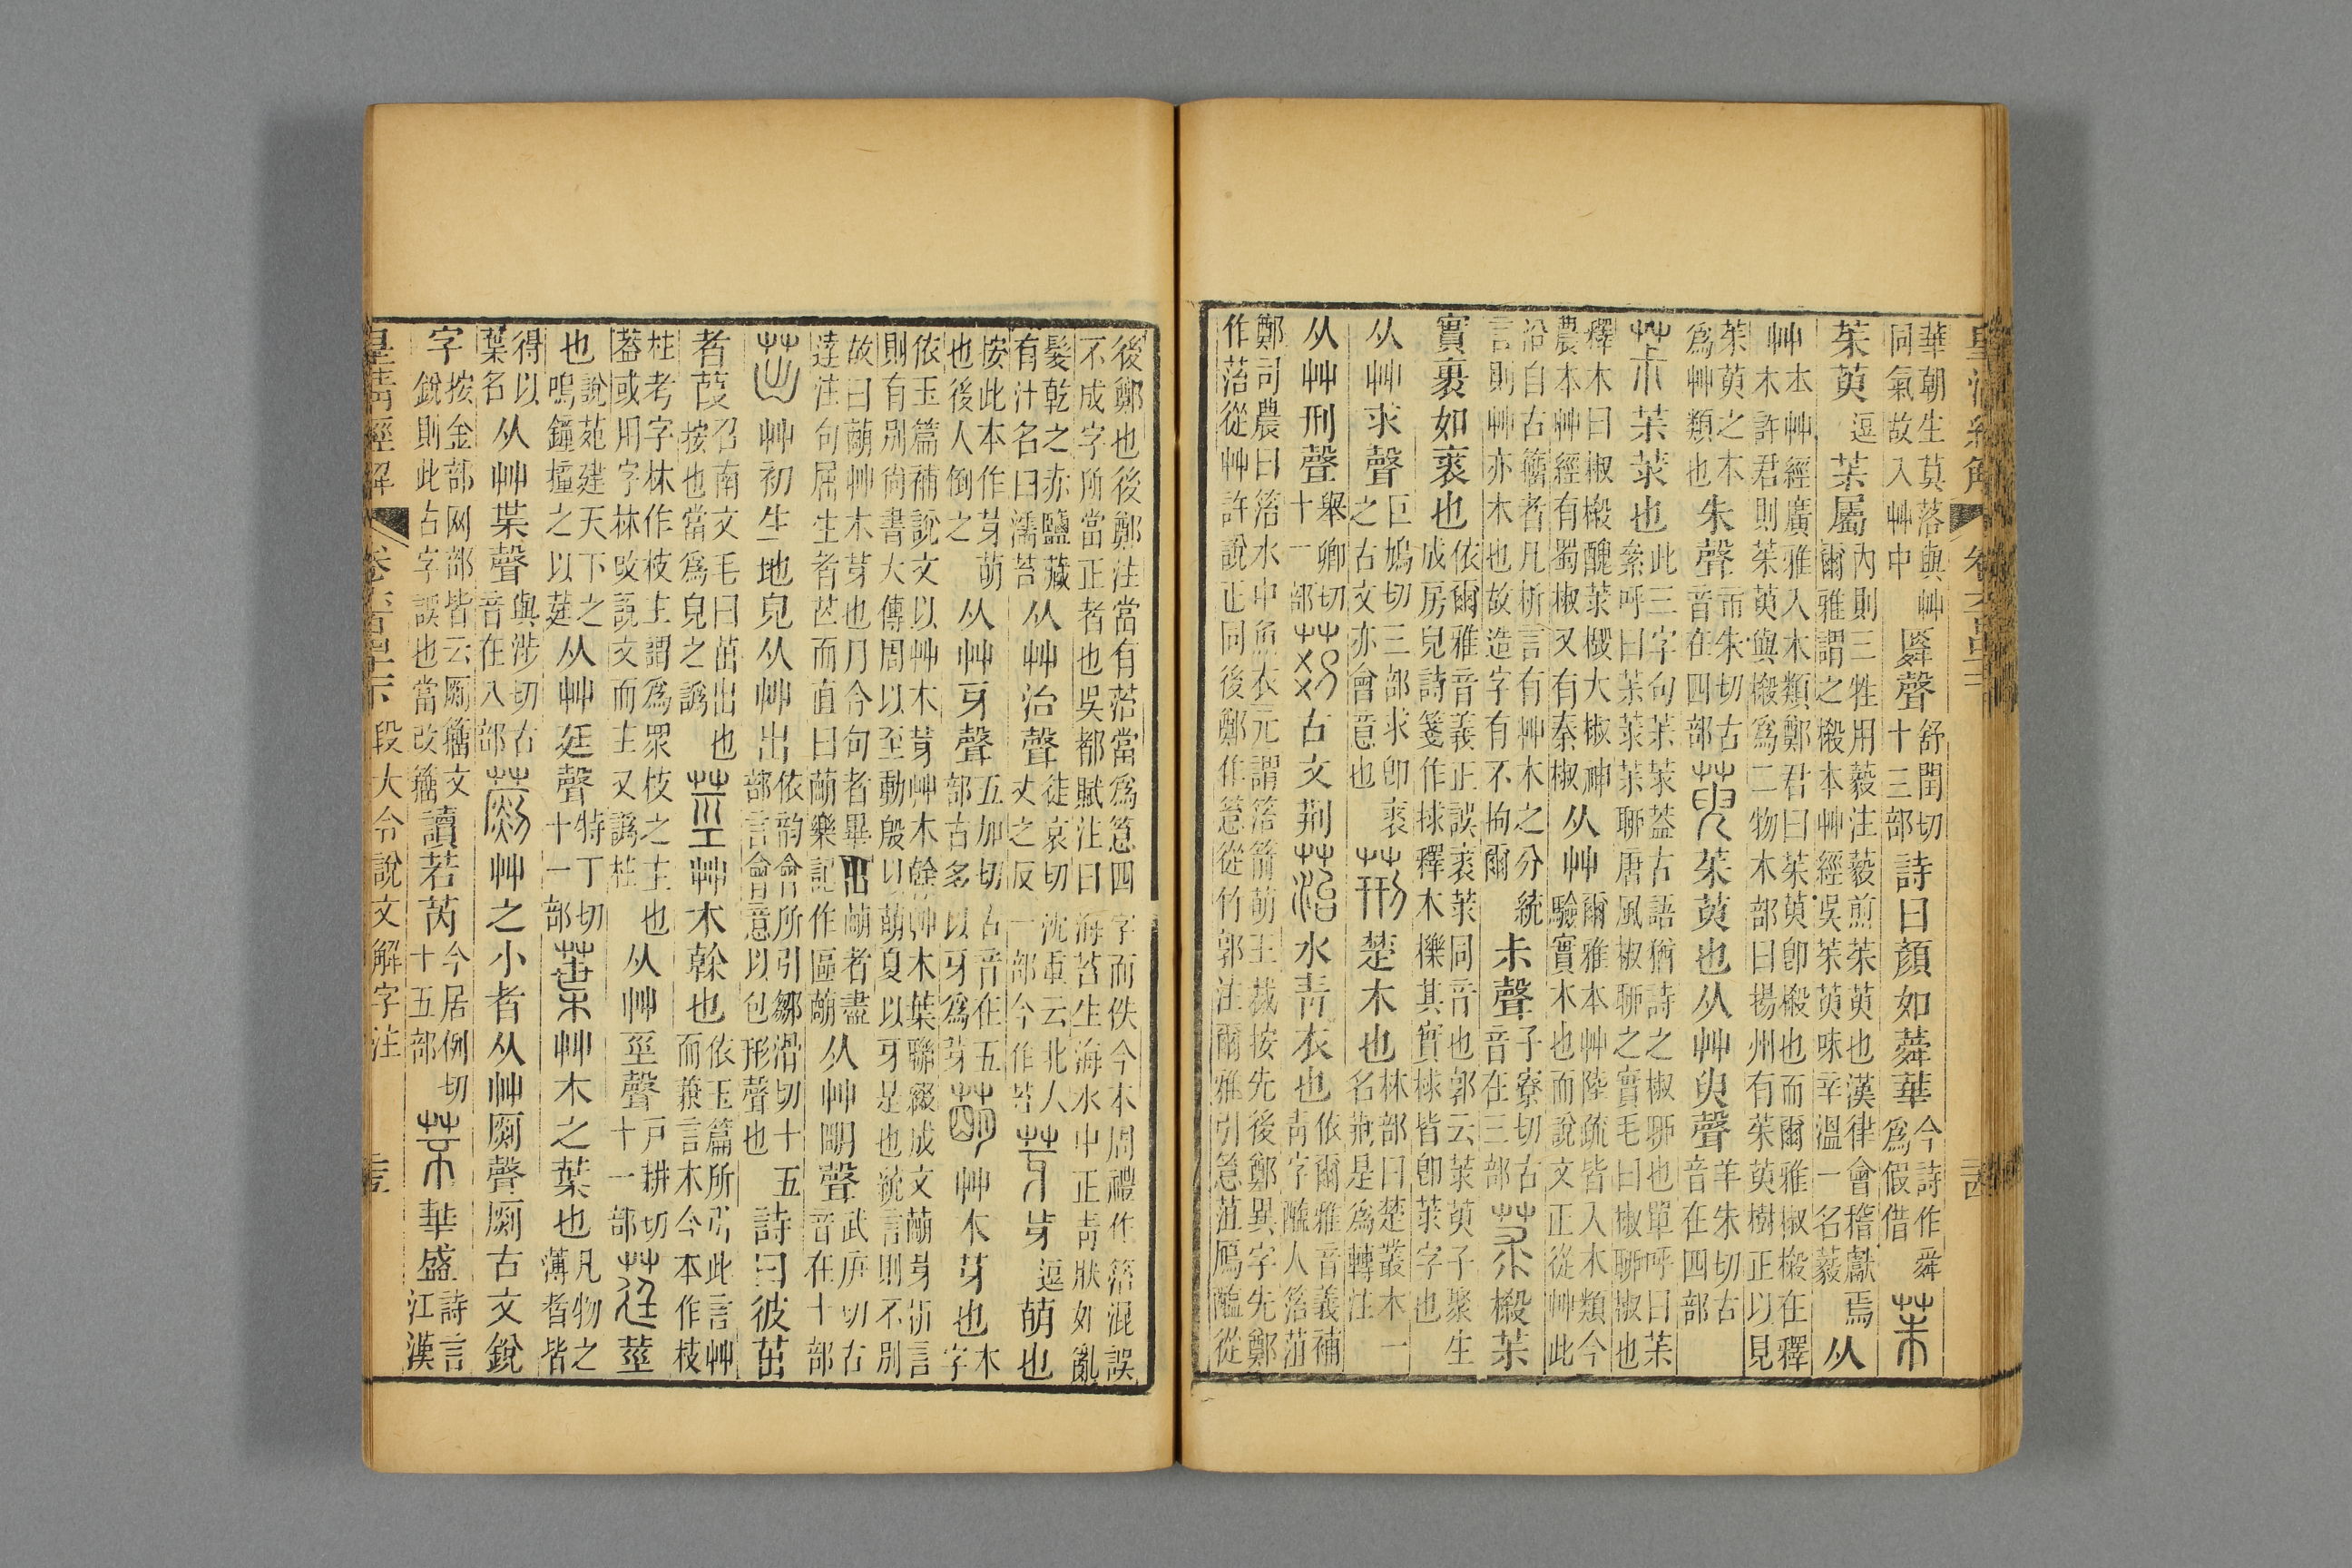 華朝生莫落與艸同氣故入艸中䑞聲舒閏切十三部詩曰顏如蕣華今詩作舜爲假借茱
茱萸逗茱屬內則三牲用藙注藙煎茱萸也漢律會稽獻焉爾雅謂之樧本艸經吳茱萸味辛溫一名藙从
艸本艸經廣雅入木類鄭君曰茱萸卽樧也而爾雅椒樧在釋木許君則茱萸與樧爲二物木部曰楊州有茱萸樹正以見
茱萸之本爲艸類也朱聲市朱切古音在四部萸茱萸也从艸臾聲羊朱切古音在四部
茮茮莍也此三字句茮莍葢古語猶詩之椒聊也單呼曰茮絫呼曰茮莍茮聊唐風椒聊之實毛曰椒聊椒也
釋木曰椒樧醜莍檓大椒神農本艸經有蜀椒又有秦椒从艸爾雅本艸陸疏皆入木類今驗實木也而說文正從艸此
沿自古籒者凡析言有艸木之分統言則艸亦木也故造字有不拘爾尗聲子寮切古音在三部莍樧茮
實裹如裘也依爾雅音義正誤裘莍同音也郭云莍萸子聚生成房皃詩箋作捄釋木櫟其實梂皆卽莍字也
从艸求聲巨鳩切三部求卽裘之古文亦會意也荊楚木也林部曰楚叢木一名荊是爲轉注
从艸刑聲舉卿切十一部古文荊菭水靑衣也依爾雅音義補靑字醢人箈菹
鄭司農曰箈水中魚衣元謂箈箭萌玉裁按先後鄭異字先鄭作菭從艸許說正同後鄭作䈚從竹郭注爾雅引䈚菹鴈醢從
後鄭也後鄭注當有菭當爲䈚四字而佚今本周禮作箈混誤不成字所當正者也吳都賦注曰海苔生海水中正靑狀如亂
髮乾之亦鹽藏有汁名曰濡苔从艸治聲徒哀切沈重云北人丈之反一部今作苔芽芽逗萌也
按此本作芽萌也後人倒之从艸牙聲五加切古音在五部古多以牙爲芽萌艸木芽也木字
依玉篇補說文以艸木芽艸木榦艸木葉聯綴成文萠芽析言則有別尙書大傳周以至動殷以萌夏以牙是也統言則不別
故曰萠艸木芽也月令句者畢出萠者盡達注句屈生者芒而直曰萠樂記作區萠从艸朙聲武庚切古音在十部
茁艸初生地皃从艸出依韵會所引鄒滑切十五部言會意以包形聲也詩曰彼茁
者葭召南文毛曰茁出也按也當爲皃之譌莖艸木榦也依玉篇所引此言艸而兼言木今本作枝
柱考字林作枝主謂爲衆枝之主也葢或用字林改說文而主又譌柱从艸巠聲戶耕切十一部莛莖
也說苑建天下之鳴鐘撞之以莛从艸廷聲特丁切十一部葉艸木之葉也凡物之薄者皆
得以葉名从艸枼聲與涉切古音在八部𦽏艸之小者从艸𠟭聲𠟭古文銳
字按金部网部皆云𠟭籒文銳則此古字誤也當改籒讀若芮今居例切十五部芣華盛詩言江漢
皇清經解 段大令說文解字注